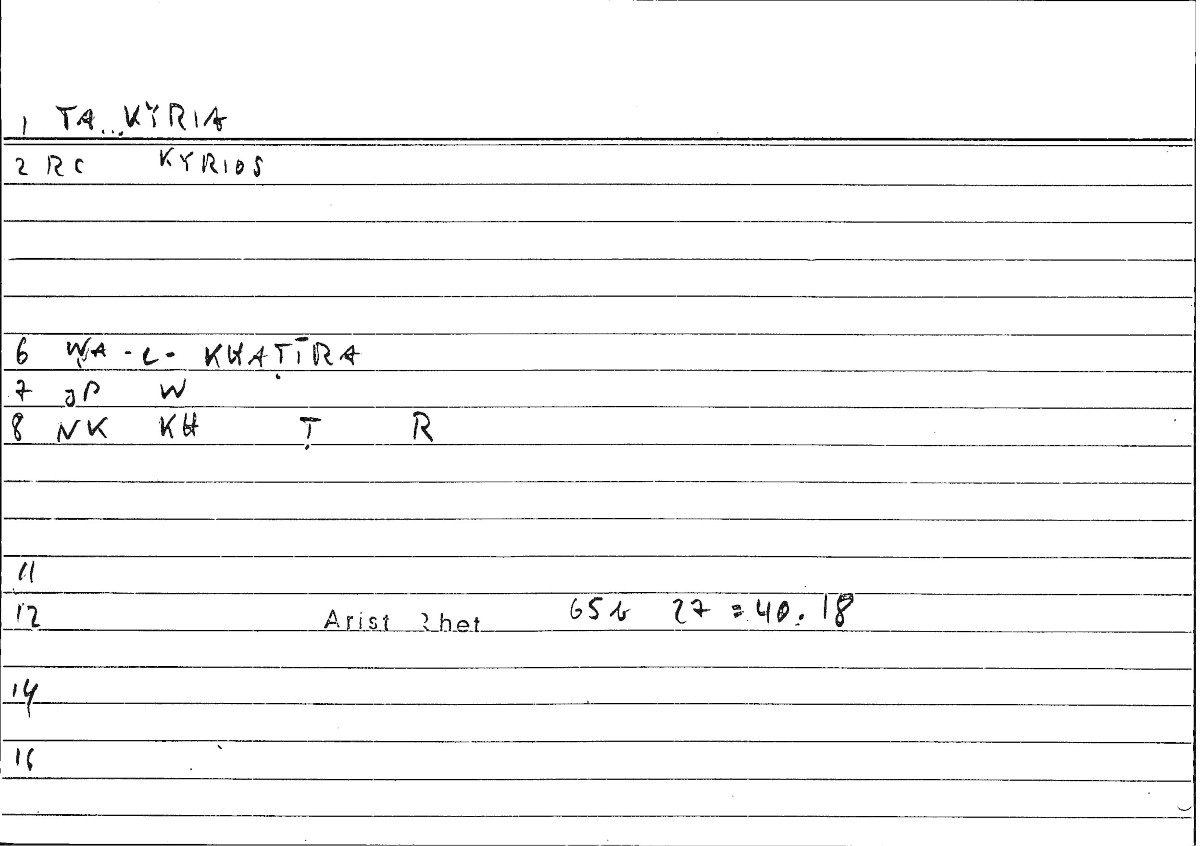 1 TA...KÝRIA
2 RC KYRIOS
6 WA-L-KHAṬĪRA
7 JP W
8 NK KH Ṭ R
11
12 Arist Rhet 65b 27 = 40.18
14
16